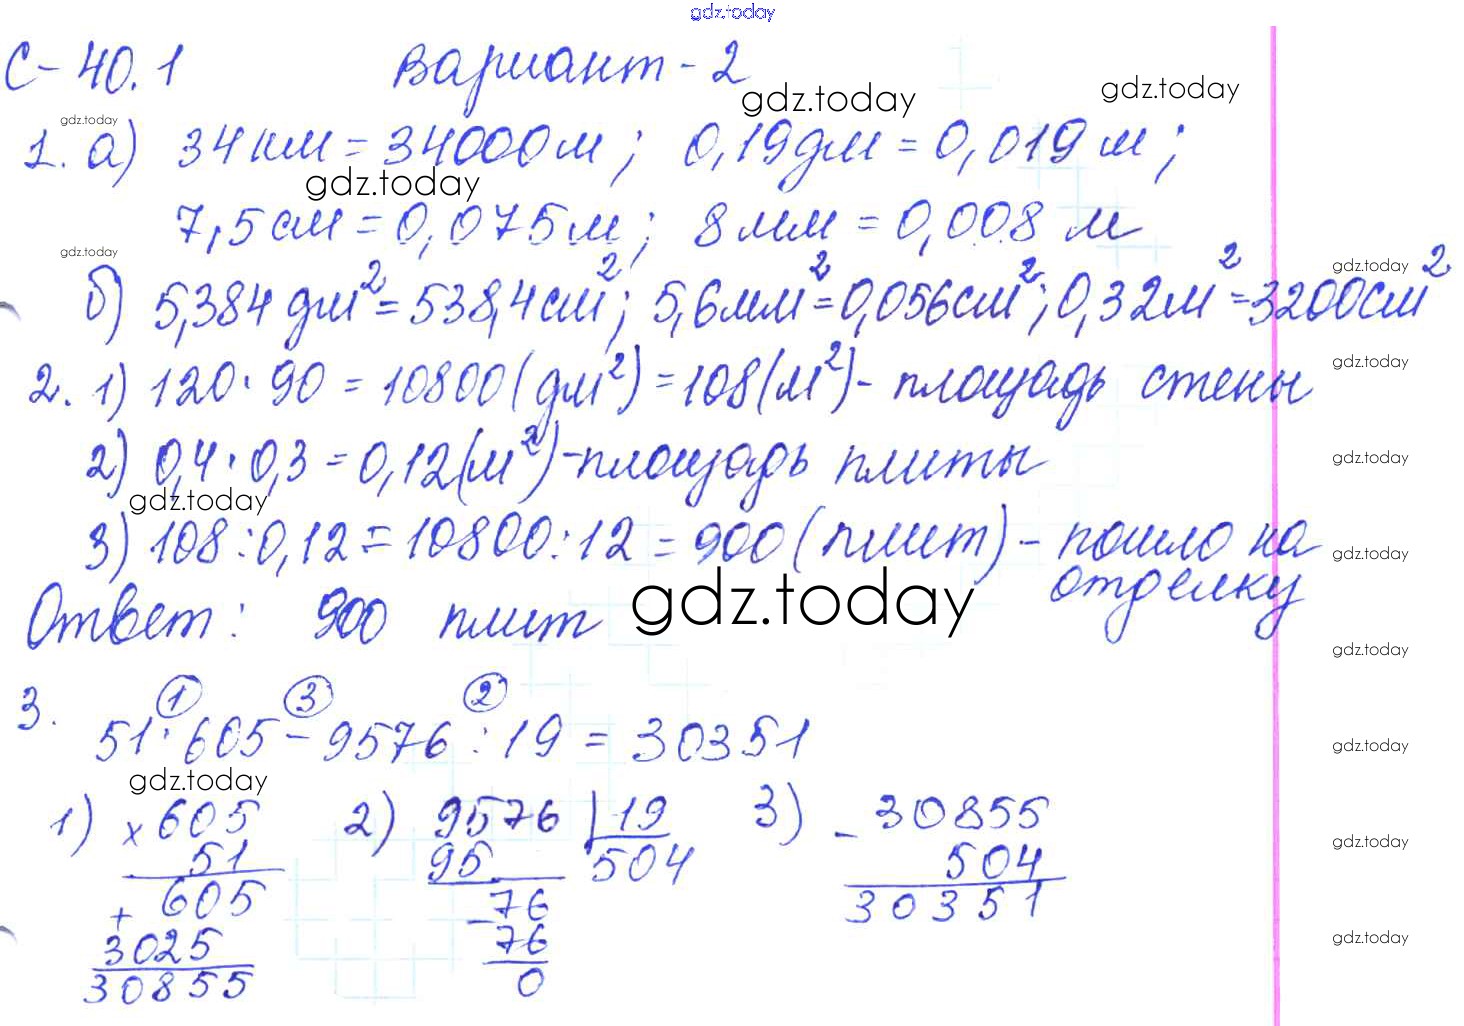 gdz.today
С-40.1 Вариант-2
gdz.today gdz.today
gdz.today
1. а) 34км = 34000м; 0,19дм = 0,019м;
gdz.today
7,5см = 0,075м; 8мм = 0,008 м
gdz.today gdz.today
б) 5,384 дм² = 538,4см²; 5,6мм² = 0,056см²; 0,32м² = 3200см²
gdz.today
2. 1) 120 · 90 = 10800 (дм²) = 108 (м²) - площадь стены
2) 0,4 · 0,3 = 0,12 (м²) - площадь плиты
gdz.today gdz.today
3) 108 : 0,12 = 10800 : 12 = 900 (плит) - пошло на
gdz.today
отделку
Ответ: 900 плит
gdz.today
gdz.today
① ③ ②
3. 51 · 605 - 9576 : 19 = 30351
gdz.today
gdz.today
1) × 605 2) 9576 | 19 3) - 30855
gdz.today
51 95 504 504
605 - 76 30351
+ 3025 76
gdz.today
30855 0